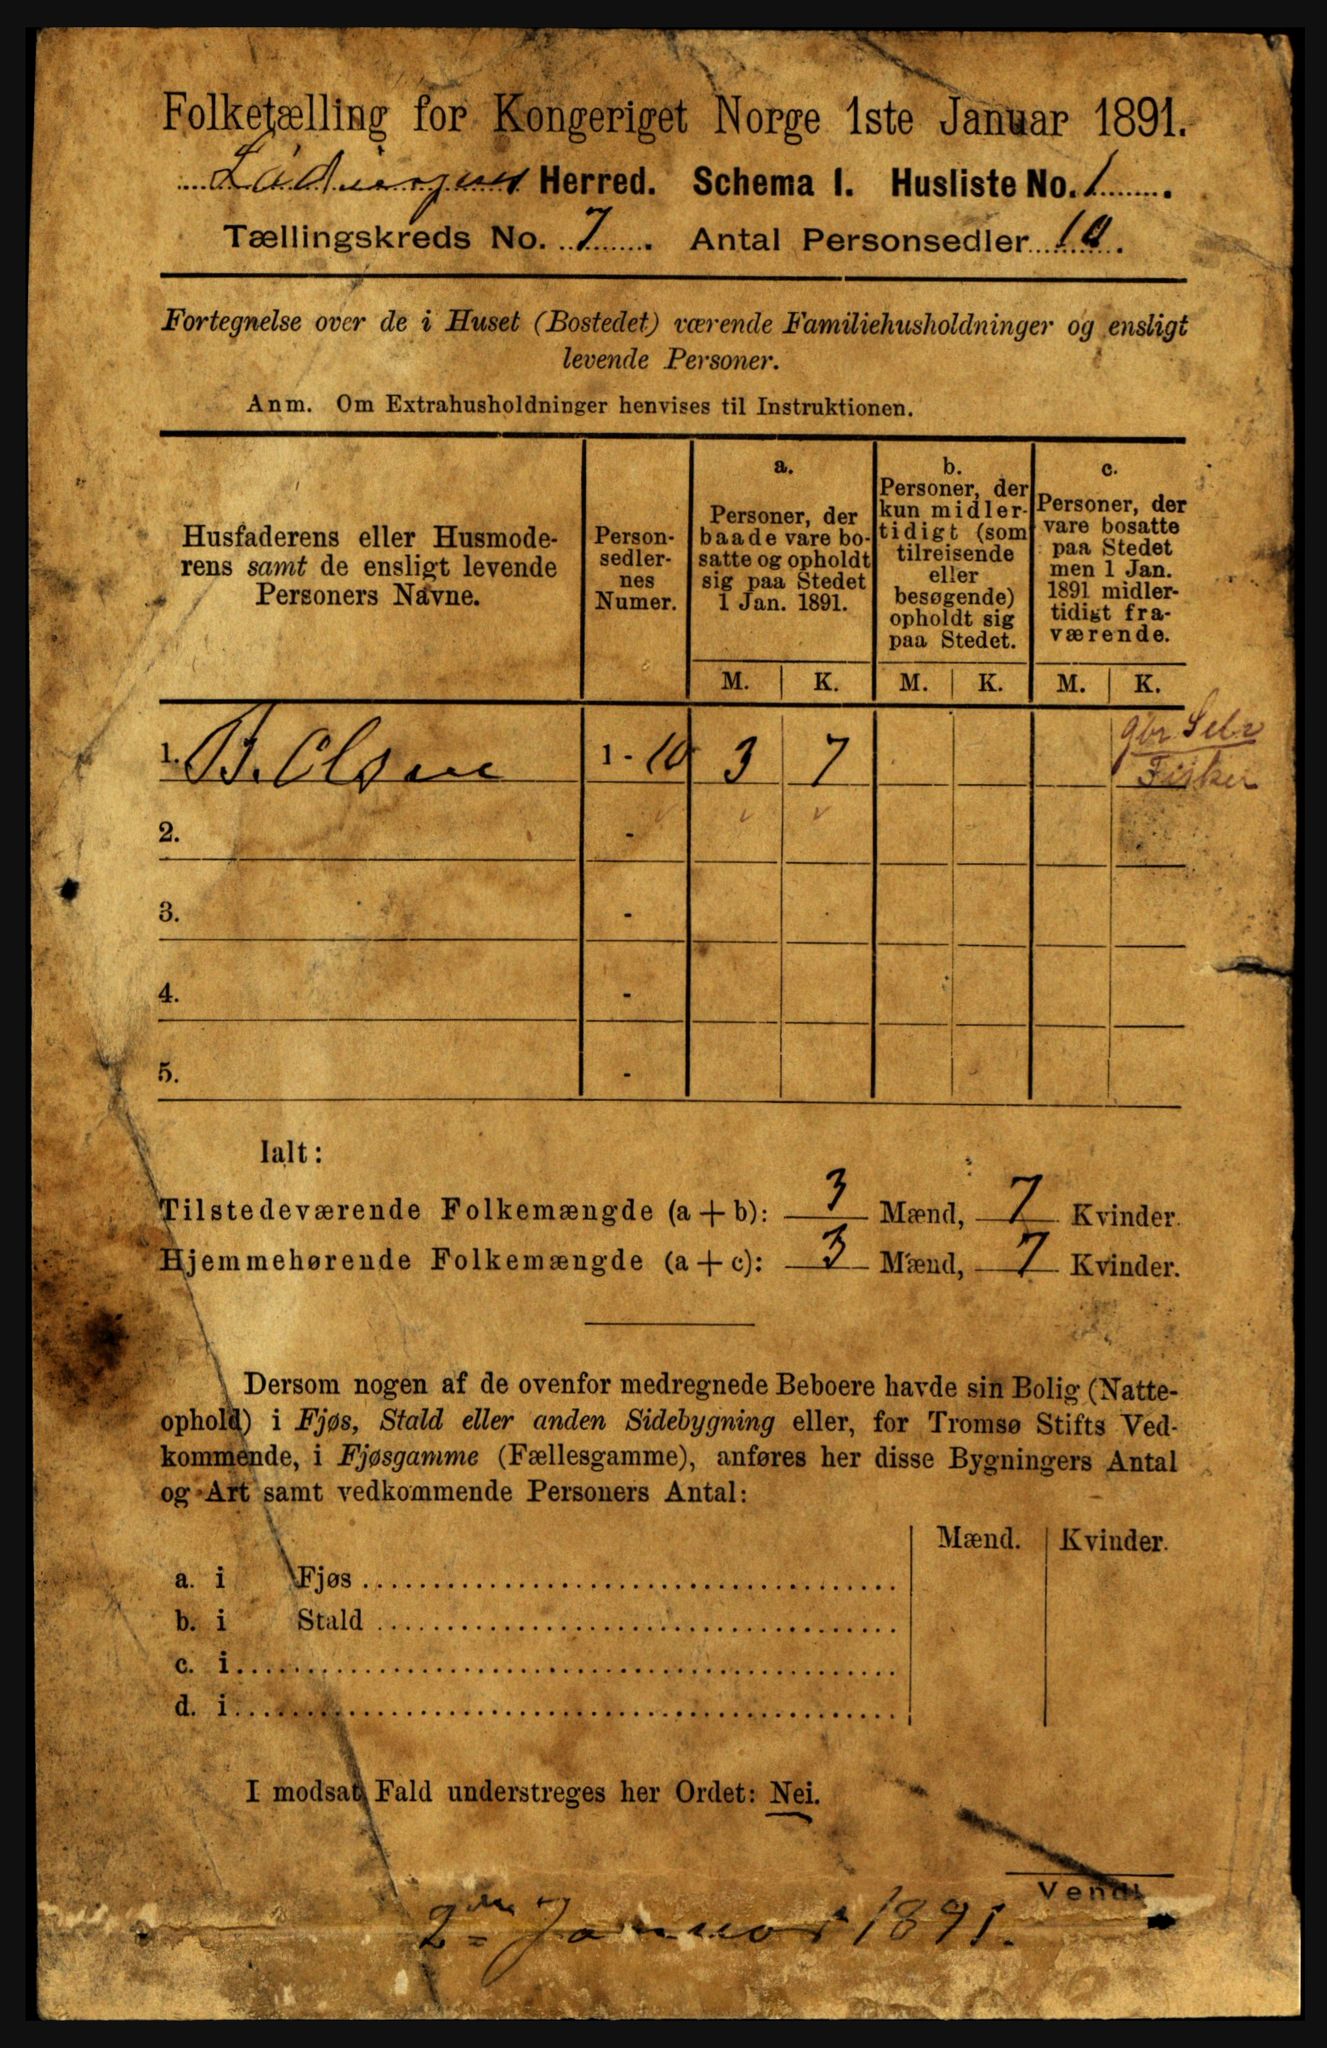 Folketælling for Kongeriget Norge 1ste Januar 1891.
Lødingen Herred. Schema I. Husliste No. 1.
Tællingskreds No. 7. Antal Personsedler 10.
Fortegnelse over de i Huset (Bostedet) værende Familiehusholdninger og ensligt
levende Personer.
Anm. Om Extrahusholdninger henvises til Instruktionen.
Husfaderens eller Husmode-
rens samt de ensligt levende
Personers Navne.
Person-
sedler-
nes
Numer.
a.
Personer, der
baade vare bo-
satte og opholdt
sig paa Stedet
1 Jan. 1891.
b.
Personer, der
kun midler-
tidigt (som
tilreisende
eller
besøgende)
opholdt sig
paa Stedet.
c.
Personer, der
vare bosatte
paa Stedet
men 1 Jan.
1891 midler-
tidigt fra-
værende.
M. K. M. K. M. K.
1. B. Olsen 1 - 10 3 7 gbr Selv
Fisker
2. -
3. -
4. -
5. -
Ialt:
Tilstedeværende Folkemængde (a + b): 3 Mænd, 7 Kvinder.
Hjemmehørende Folkemængde (a + c): 3 Mænd, 7 Kvinder.
Dersom nogen af de ovenfor medregnede Beboere havde sin Bolig (Natte-
ophold) i Fjøs, Stald eller anden Sidebygning eller, for Tromsø Stifts Ved-
kommende, i Fjøsgamme (Fællesgamme), anføres her disse Bygningers Antal
og Art samt vedkommende Personers Antal:
Mænd. Kvinder.
a. i Fjøs
b. i Stald
c. i
d. i
I modsat Fald understreges her Ordet: Nei.
Vend!
2den Januar 1891.